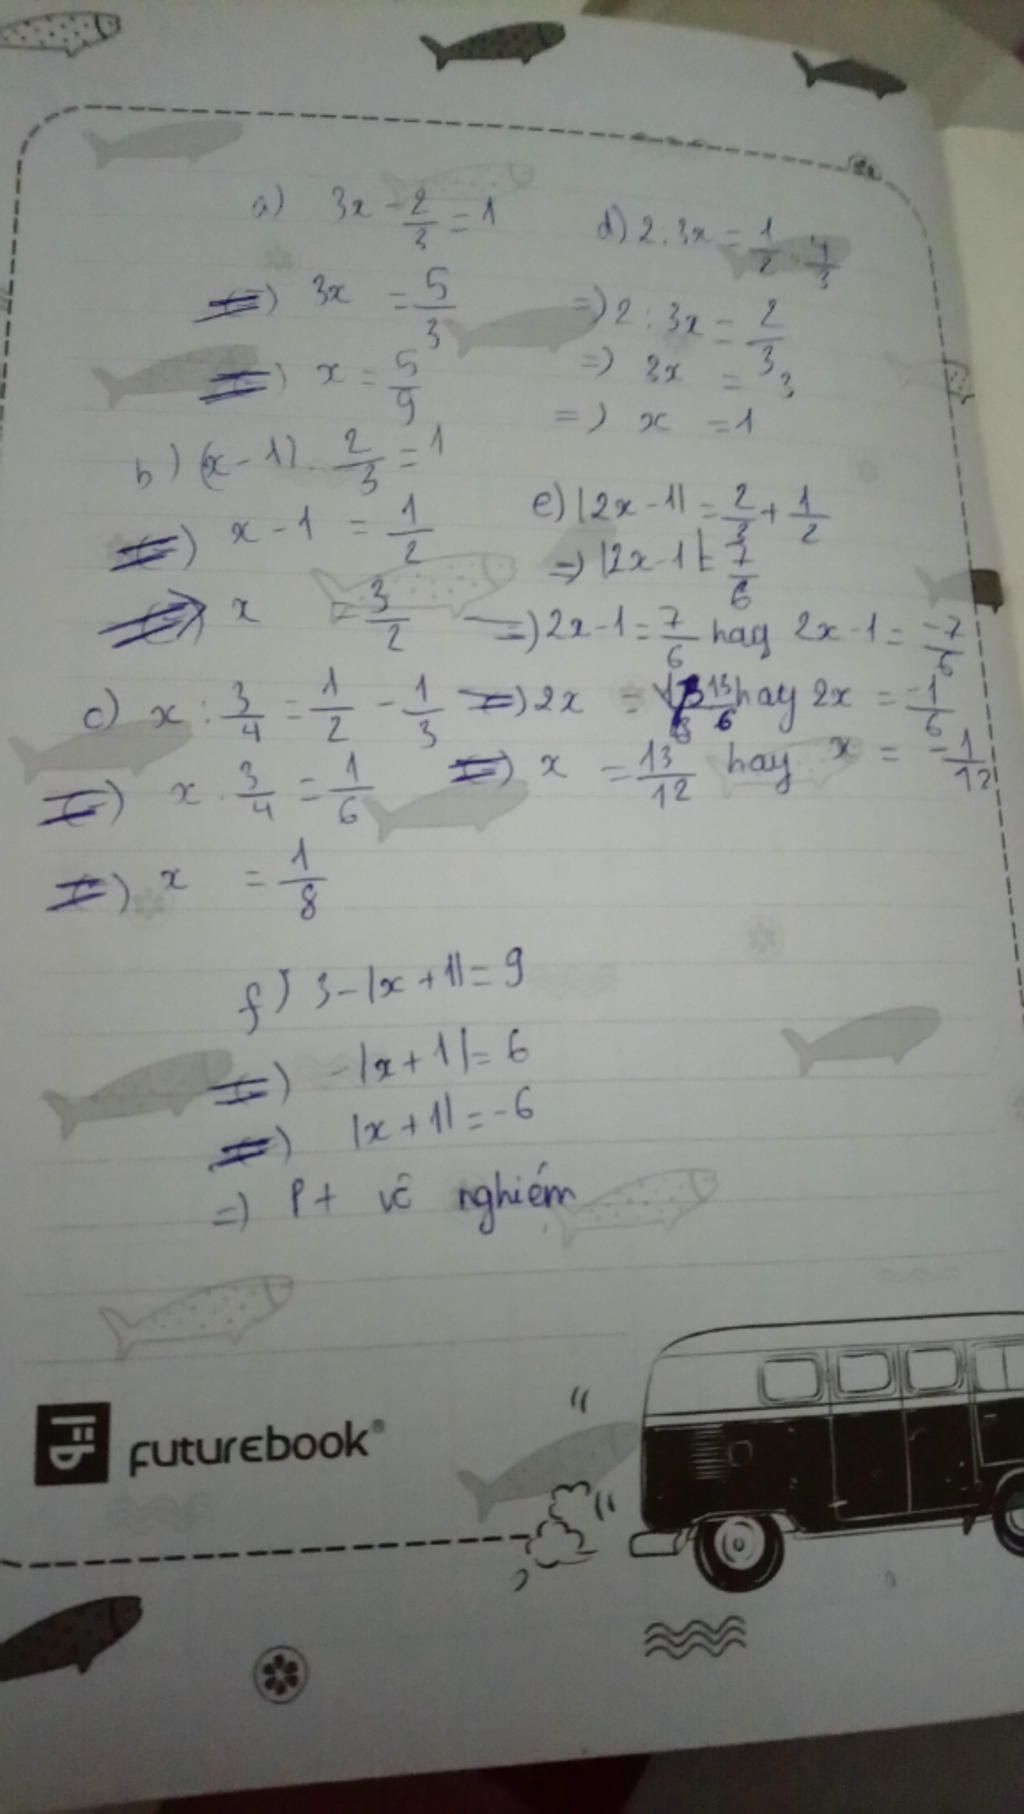 a) 3x - 2/3 = 1
=) 3x = 5/3
=) x = 5/9
b) (x-1). 2/3 = 1
=) x - 1 = 1/2
=) x = 3/2
c) x : 3/4 = 1/2 - 1/3
=) x . 3/4 = 1/6
=) x = 1/8
d) 2 : 3x = 1/2 . 1/3
=) 2 : 3x = 2/3
=) 3x = 3
=) x = 1
e) |2x - 1| = 2/3 + 1/2
=) |2x - 1| = 7/6
=) 2x - 1 = 7/6 hay 2x - 1 = -7/6
=) 2x = 13/6 hay 2x = -1/6
=) x = 13/12 hay x = -1/12
f) 3 - |x + 1| = 9
=) -|x + 1| = 6
=) |x + 1| = -6
=) Pt vô nghiệm
Fb FUTUREBOOK®